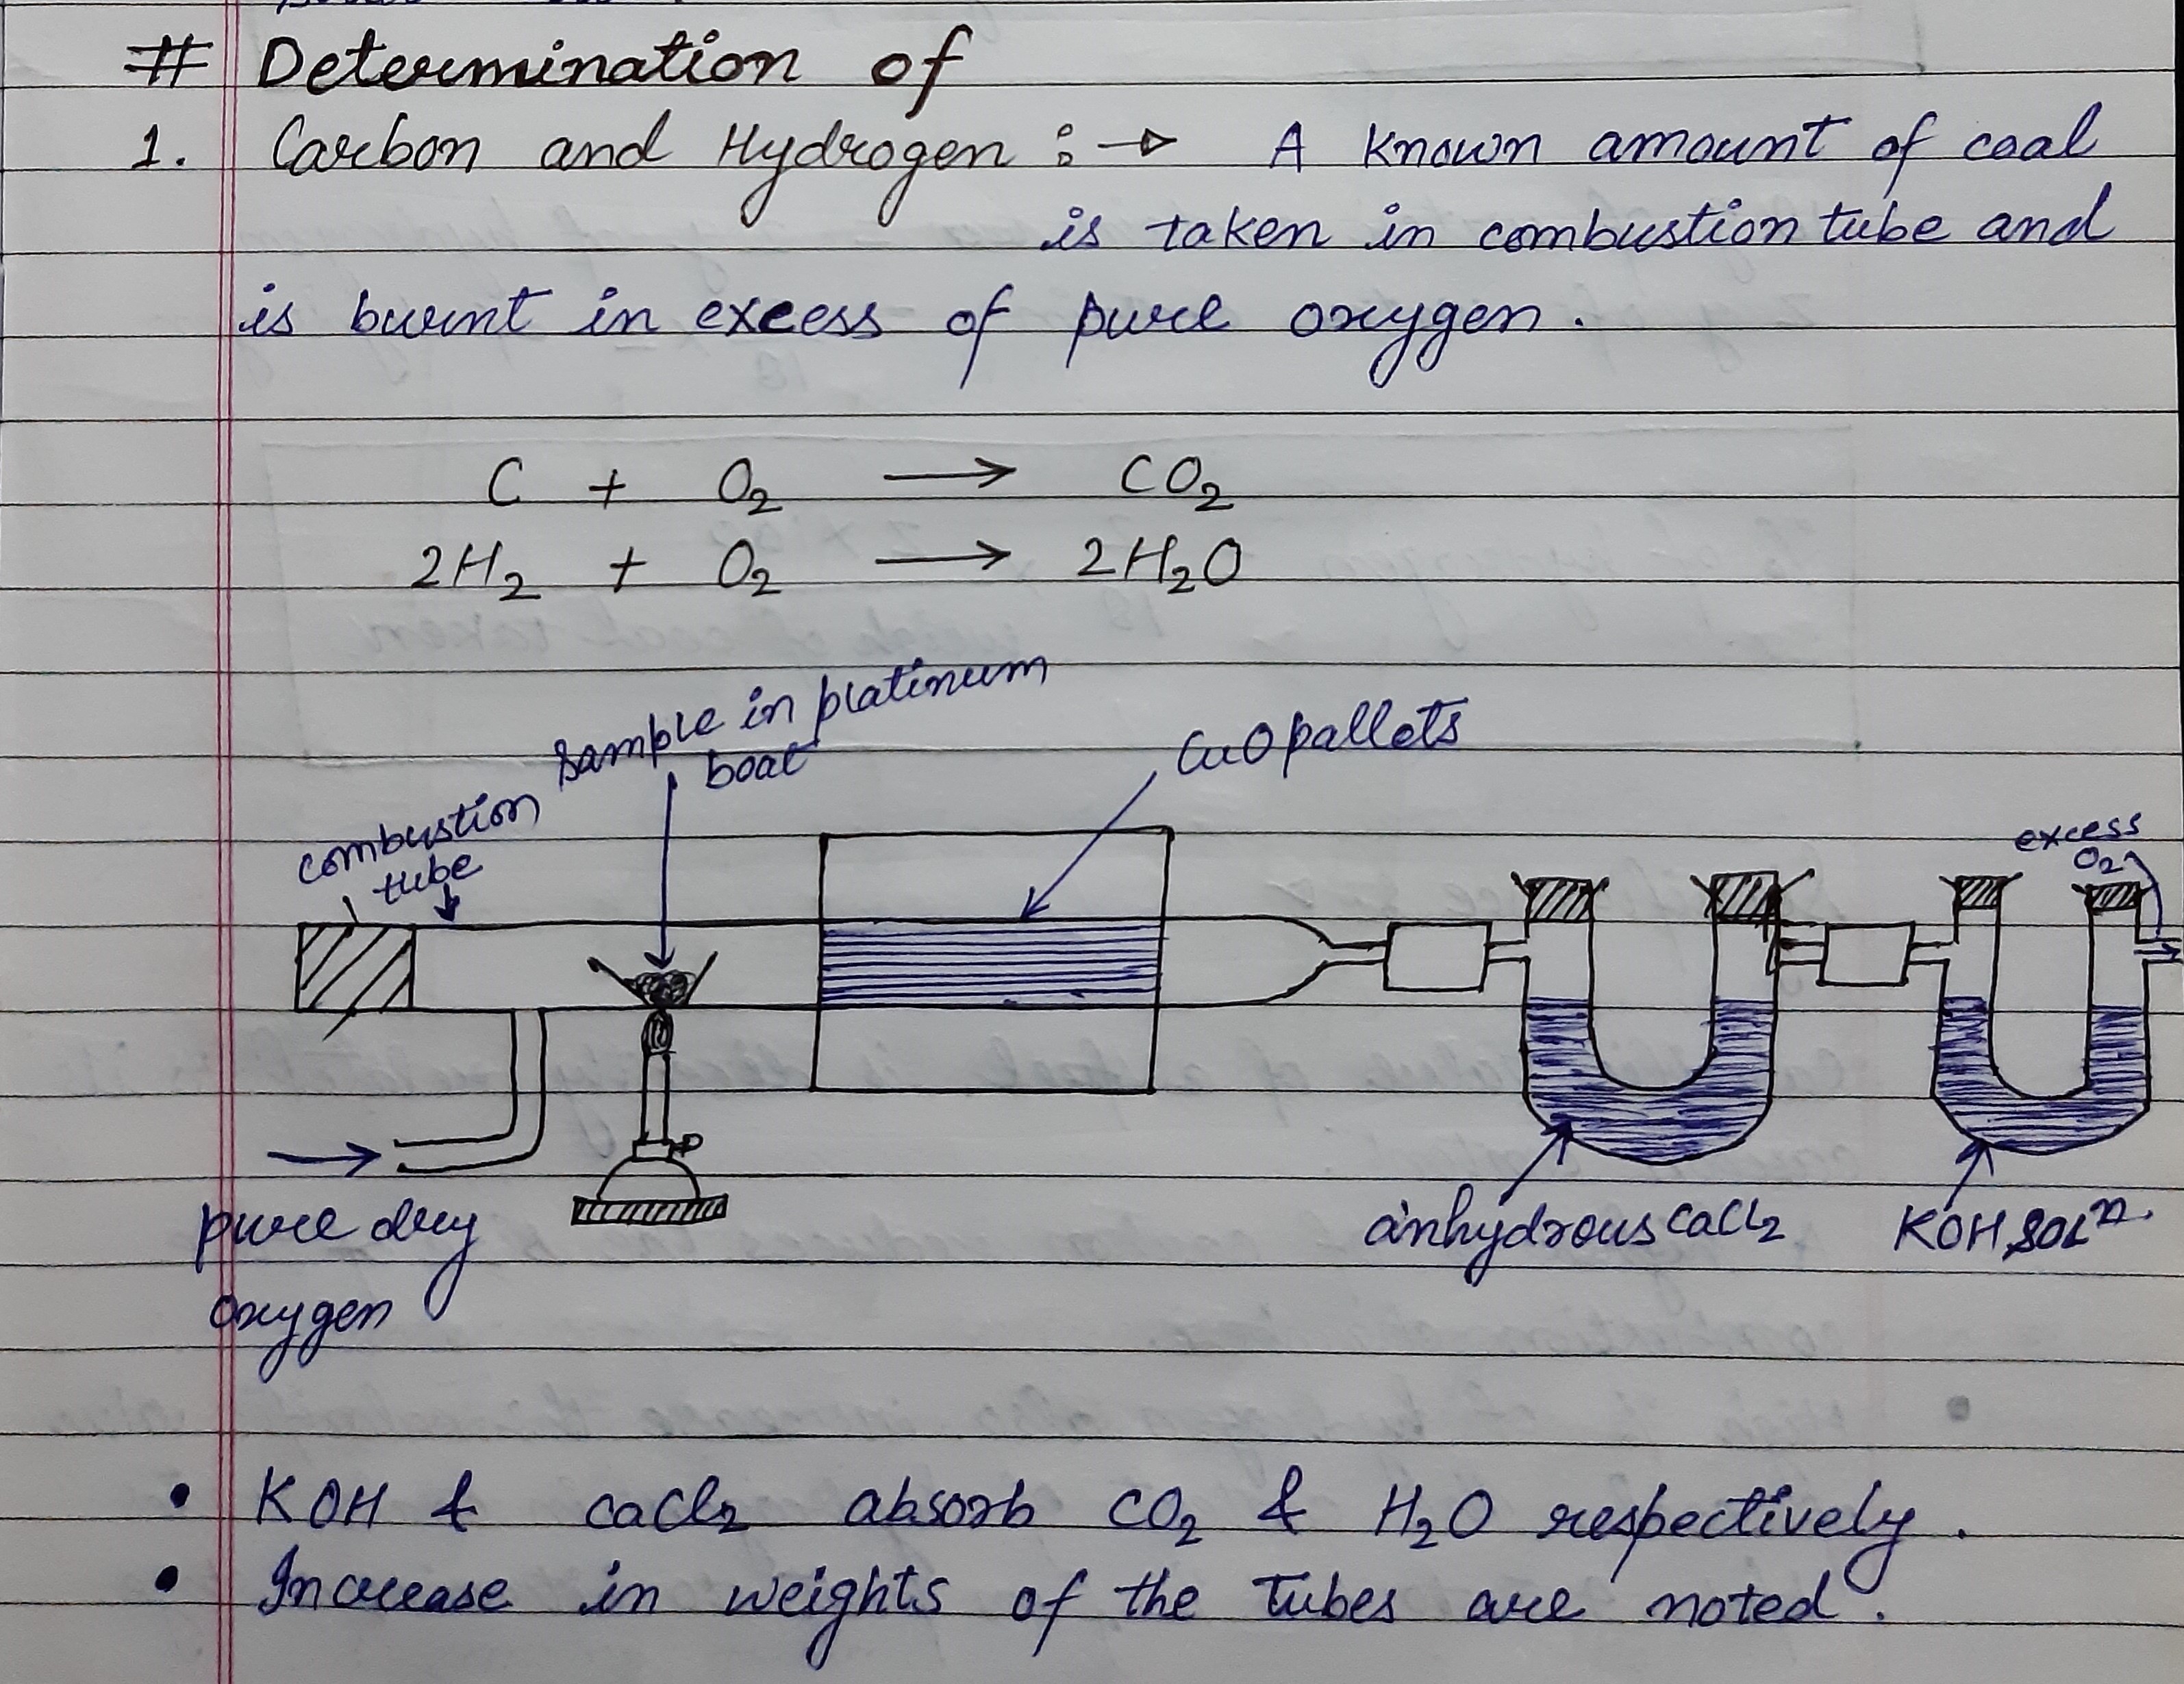 # Determination of
1. Carbon and Hydrogen :→ A known amount of coal
is taken in combustion tube and
is burnt in excess of pure oxygen.
C + O₂ → CO₂
2H₂ + O₂ → 2H₂O
sample in platinum
boat
CuO pallets
combustion
tube
excess
O₂
pure dry
oxygen
anhydrous CaCl₂
KOH solⁿ.
• KOH & CaCl₂ absorb CO₂ & H₂O respectively.
• Increase in weights of the tubes are noted.